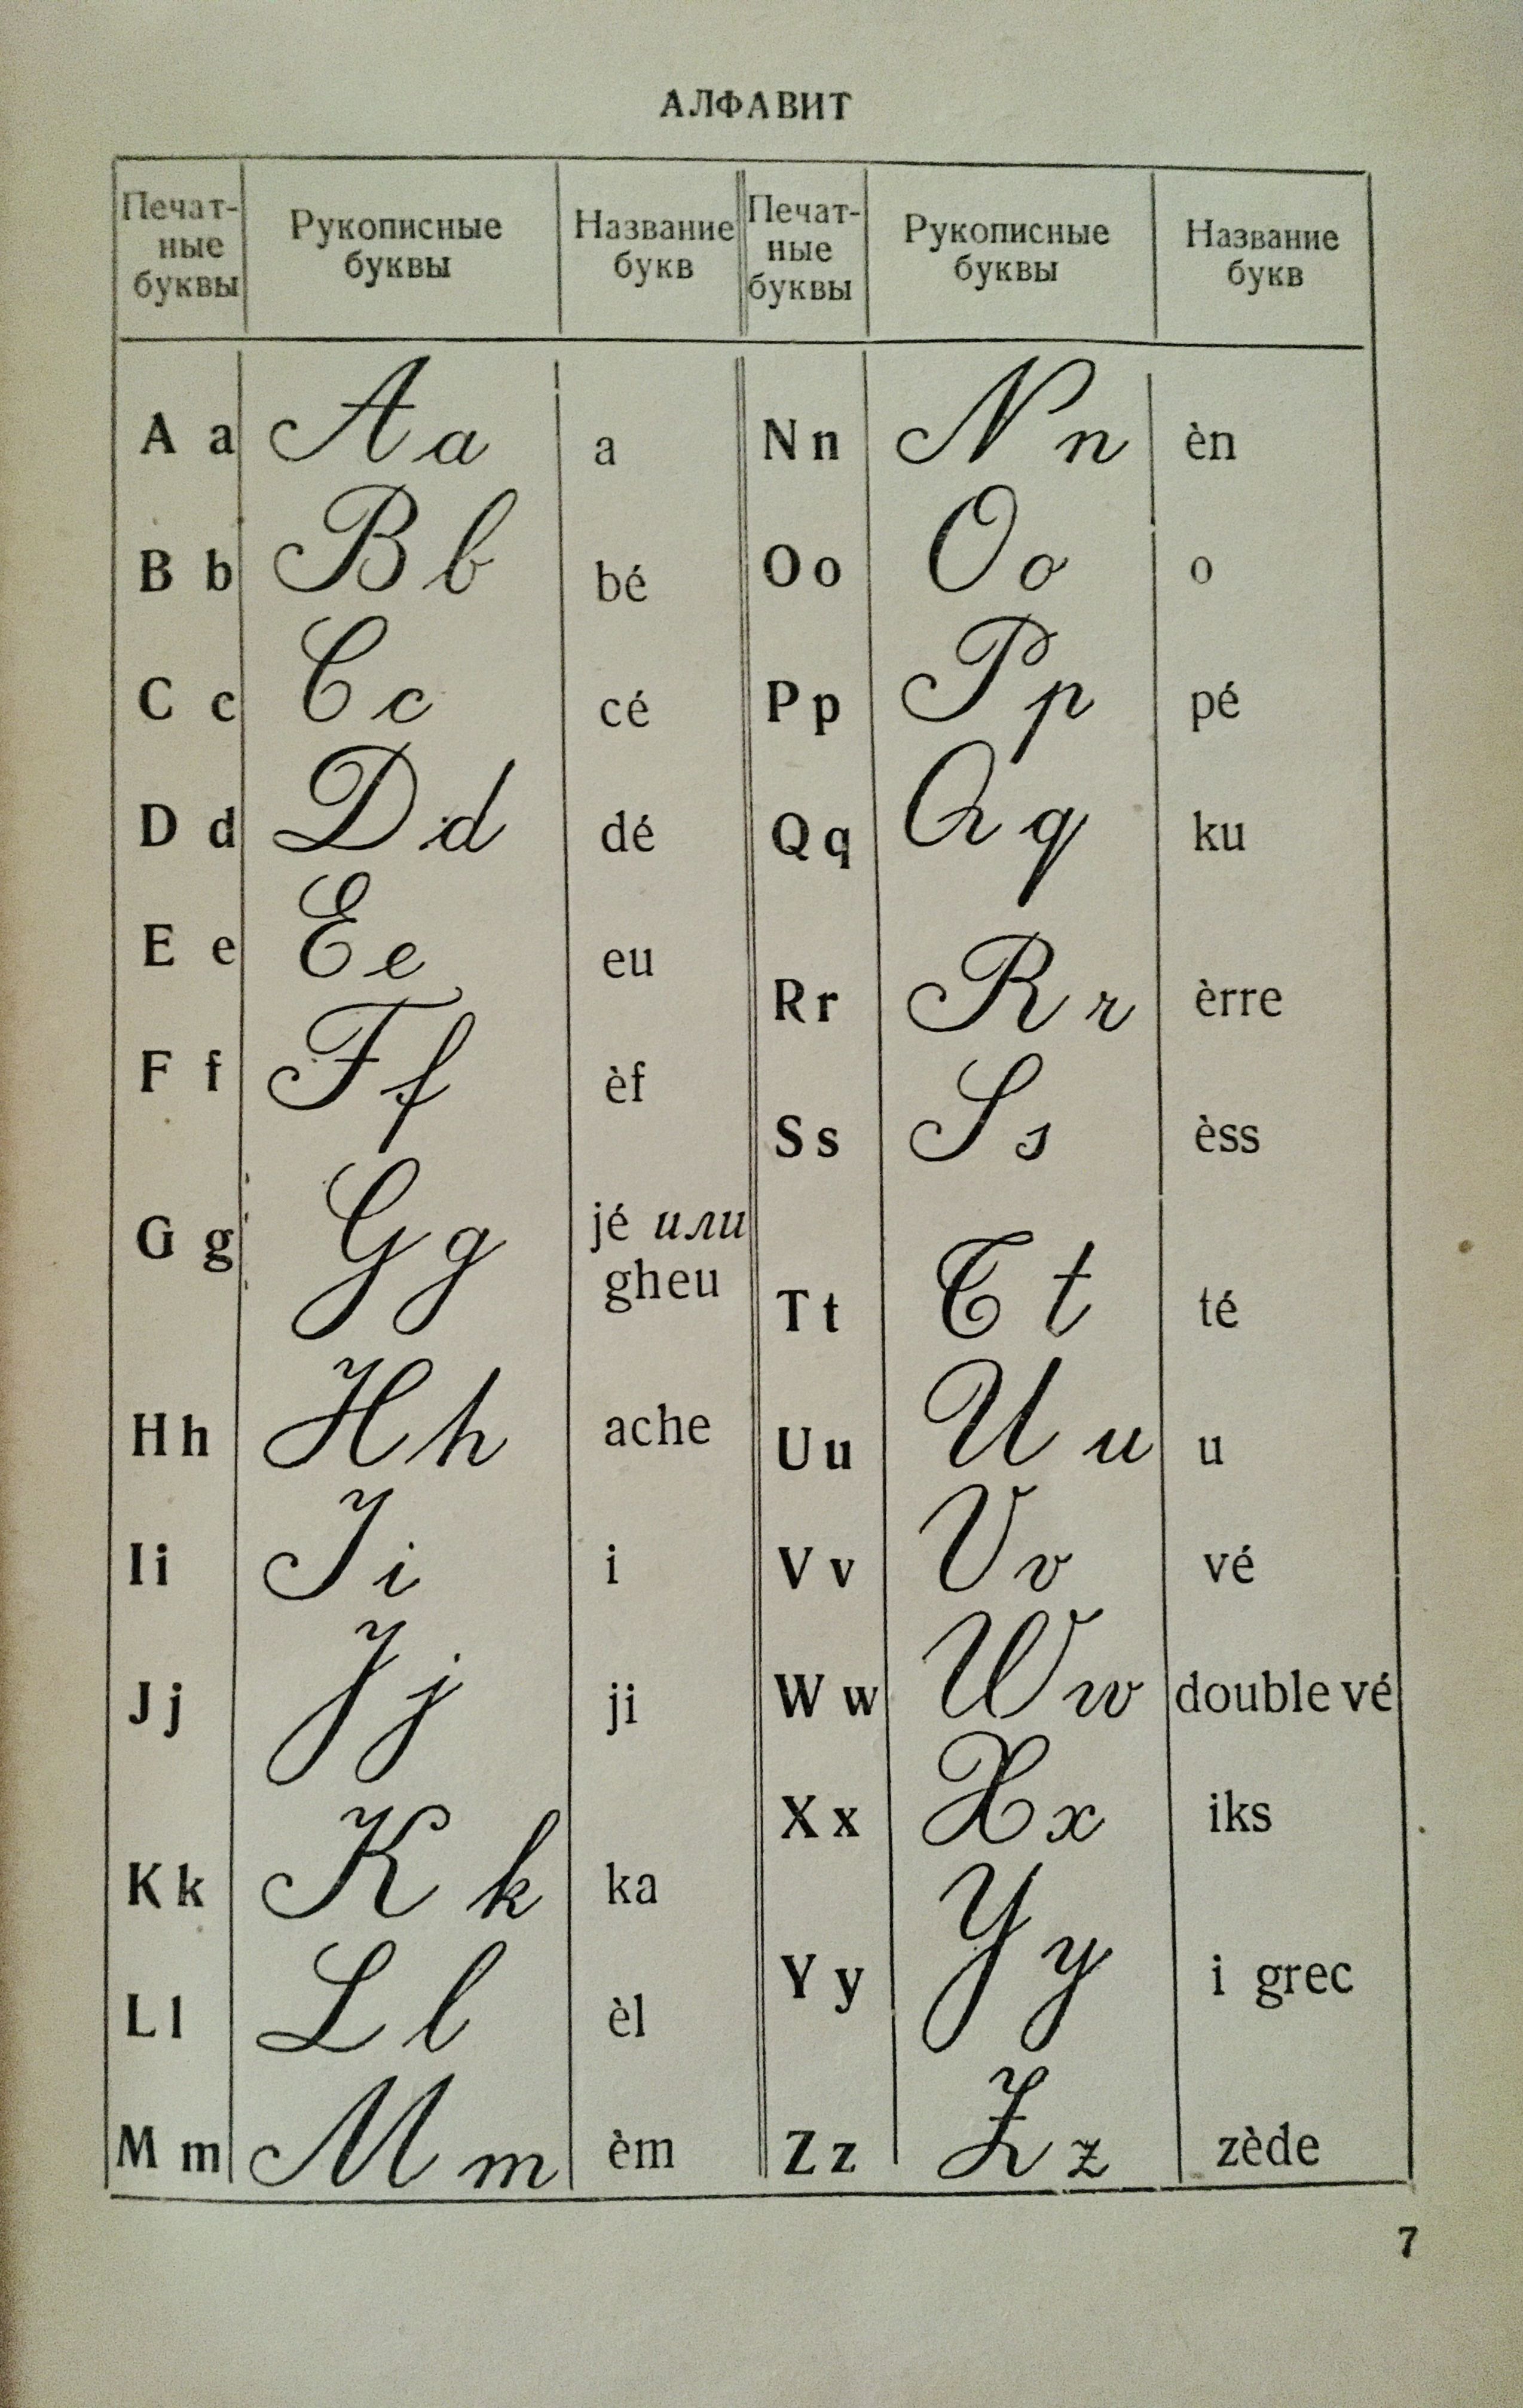 АЛФАВИТ
Печат-
ные
буквы
Рукописные
буквы
Название
букв
Печат-
ные
буквы
Рукописные
буквы
Название
букв
A a A a a
B b B b bé
C c C c cé
D d D d dé
E e E e eu
F f F f èf
G g G g jé или
gheu
H h H h ache
I i I i i
J j J j ji
K k K k ka
L l L l èl
M m M m èm
N n N n èn
O o O o o
P p P p pé
Q q Q q ku
R r R r èrre
S s S s èss
T t T t té
U u U u u
V v V v vé
W w W w double vé
X x X x iks
Y y Y y i grec
Z z Z z zède
7